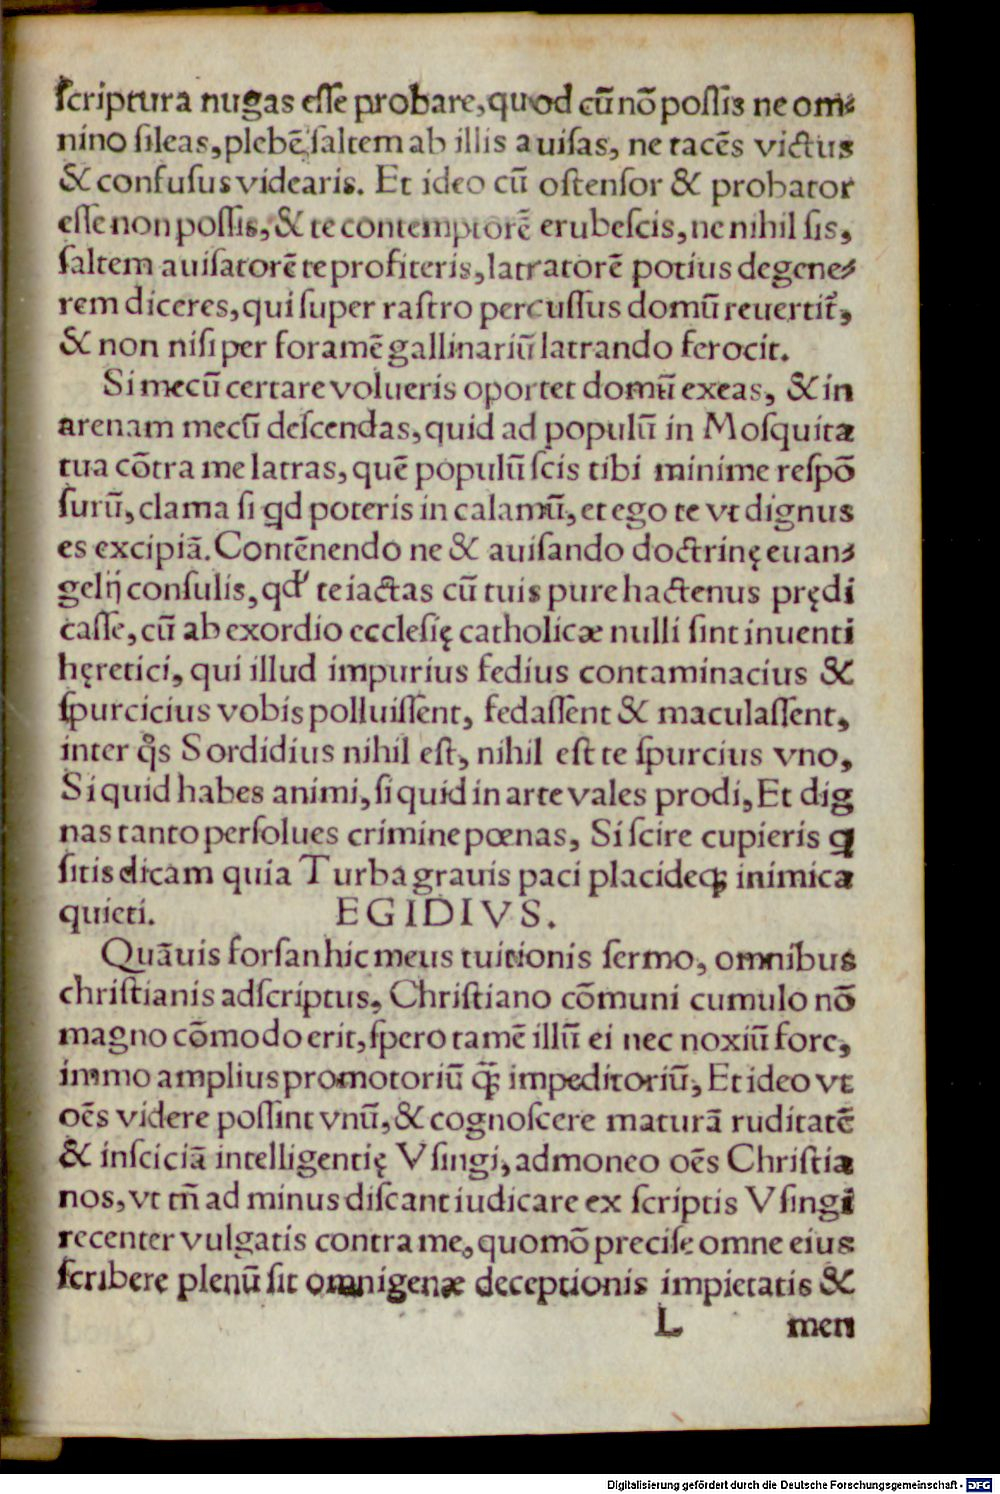 ſcriptura nugas eſſe probare, quod cū nō poſſis ne om⸗
nino ſileas, plebē ſaltem ab illis auiſas, ne tacēs victus
& confuſus videaris. Et ideo cū oſtenſor & probator
eſſe non poſſis, & te contemptorē erubeſcis, ne nihil ſis,
ſaltem auiſatorē te profiteris, latratorē potius degene⸗
rem diceres, qui ſuper raſtro percuſſus domū reuertit̃,
& non niſi per foramē gallinariū latrando ferocit.
Si mecū certare volueris oportet domū exeas, & in
arenam mecū deſcendas, quid ad populū in Moſquita
tua cōtra me latras, quē populū ſcis tibi minime reſpō
ſurū, clama ſi qd poteris in calamū, et ego te vt dignus
es excipiā. Contēnendo ne & auiſando doctrinę euan⸗
gelij conſulis, qd' te iactas cū tuis pure hactenus prędi
caſſe, cū ab exordio eccleſię catholicæ nulli ſint inuenti
hęretici, qui illud impurius fedius contaminacius &
ſpurcicius vobis polluiſſent, fedaſſent & maculaſſent,
inter qͦs Sordidius nihil eſt, nihil eſt te ſpurcius vno,
Si quid habes animi, ſi quid in arte vales prodi, Et dig
nas tanto perſolues crimine pœnas, Si ſcire cupieris ꝙ
ſitis dicam quia Turba grauis paci placideqꝫ inimica
quieti. EGIDIVS.
Quāuis forſan hic meus tuitionis ſermo, omnibus
chriſtianis adſcriptus, Chriſtiano cōmuni cumulo nō
magno cōmodo erit, ſpero tamē illū ei nec noxiū fore,
immo amplius promotoriū ꝙ̄ impeditoriū, Et ideo vt
oēs videre poſſint vnū, & cognoſcere maturā ruditatē
& inſciciā intelligentię Vſingi, admoneo oēs Chriſtia
nos, vt tm̄ ad minus diſcant iudicare ex ſcriptis Vſingi
recenter vulgatis contra me, quomō preciſe omne eius
ſcribere plenū ſit omnigenæ deceptionis impietatis &
L men
Digitalisierung gefördert durch die Deutsche Forschungsgemeinschaft - DFG